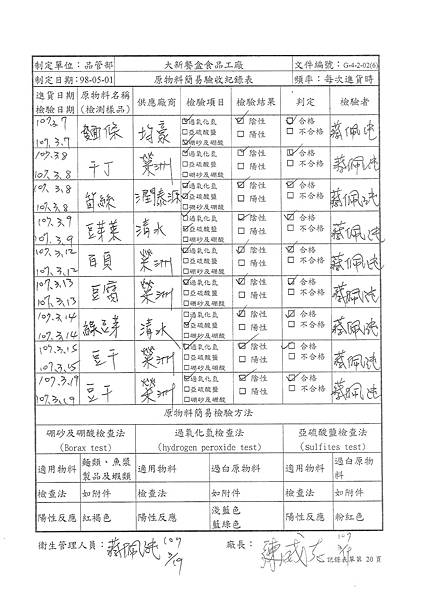 制定單位：品管部 大新餐盒食品工廠 文件編號：G-4-2-02(6)
制定日期：98-05-01 原物料簡易驗收紀錄表 頻率：每次進貨時
進貨日期 原物料名稱 供應廠商 檢驗項目 檢驗結果 判定 檢驗者
檢驗日期 (檢測樣品)
107.3.7 麵條 均豪 過氧化氫 陰性 合格 蔡佩純
107.3.7 亞硫酸鹽 陽性 不合格
硼砂及硼酸
107.3.8 干丁 榮洲 過氧化氫 陰性 合格 蔡佩純
107.3.8 亞硫酸鹽 陽性 不合格
硼砂及硼酸
107.3.8 筍絲 潤泰源 過氧化氫 陰性 合格 蔡佩純
107.3.8 亞硫酸鹽 陽性 不合格
硼砂及硼酸
107.3.9 豆芽菜 清水 過氧化氫 陰性 合格 蔡佩純
107.3.9 亞硫酸鹽 陽性 不合格
硼砂及硼酸
107.3.12 百頁 榮洲 過氧化氫 陰性 合格 蔡佩純
107.3.12 亞硫酸鹽 陽性 不合格
硼砂及硼酸
107.3.13 豆腐 榮洲 過氧化氫 陰性 合格 蔡佩純
107.3.13 亞硫酸鹽 陽性 不合格
硼砂及硼酸
107.3.14 綠豆芽 清水 過氧化氫 陰性 合格 蔡佩純
107.3.14 亞硫酸鹽 陽性 不合格
硼砂及硼酸
107.3.15 豆干 榮洲 過氧化氫 陰性 合格 蔡佩純
107.3.15 亞硫酸鹽 陽性 不合格
硼砂及硼酸
107.3.19 豆干 榮洲 過氧化氫 陰性 合格 蔡佩純
107.3.19 亞硫酸鹽 陽性 不合格
硼砂及硼酸
原物料簡易檢驗方法
硼砂及硼酸檢查法 過氧化氫檢查法 亞硫酸鹽檢查法
(Borax test) (hydrogen peroxide test) (sulfites test)
適用物料 麵類、魚漿製品及蝦類 適用物料 過白原物料 適用物料 過白原物料
檢查法 如附件 檢查法 如附件 檢查法 如附件
陽性反應 紅褐色 陽性反應 淺藍色 陽性反應 粉紅色
藍綠色
衛生管理人員：蔡佩純 107 3/19 廠長： 107
記錄表單第 20 頁